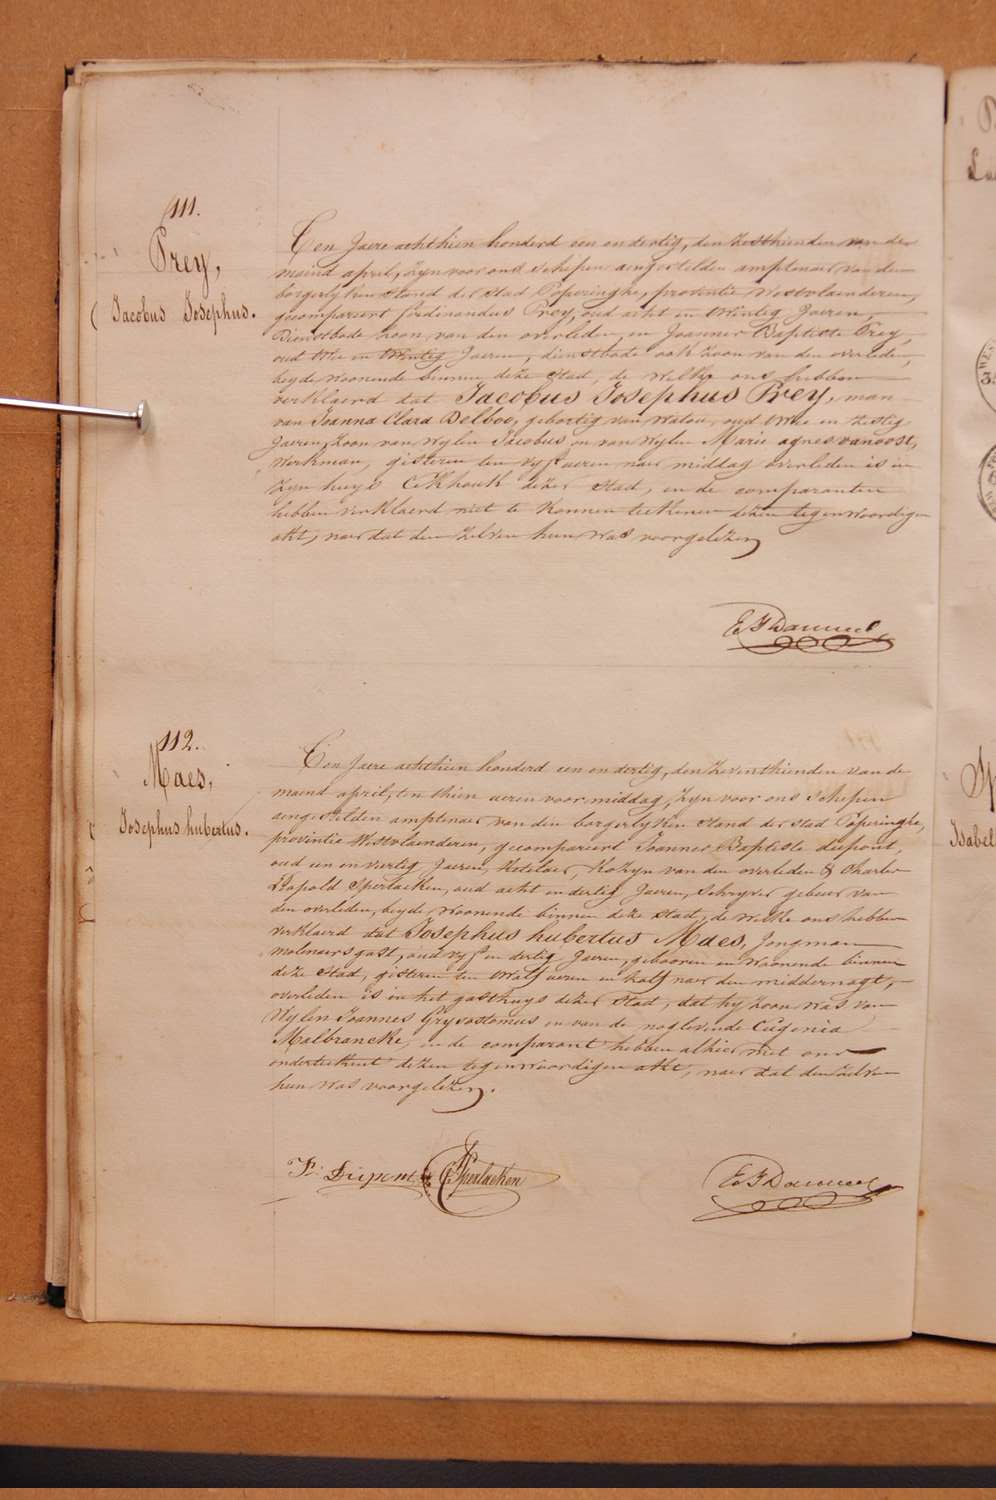 111.
Prey,
Jacobus Josephus.
Ten Jaere achthien honderd een en dertig, den zesthienden van der
maend april, zyn voor ons Schepen aengestelden amptenaer van den
borgerlyken stand der stad Poperinghe, provintie Westvlaenderen,
gecompareert ferdinandus Prey, oud acht en twintig Jaeren,
Dienstbode zoon van den overleden, en Joannes Baptiste Prey,
oud drie en twintig Jaeren, dienstbode ook zoon van den overleden,
beyde woonende binnen deze Stad, de welke ons hebben
verklaerd dat Jacobus Josephus Prey, man
van Joanna Clara Delboo, gebortig van Watou, oud twee en zestig
Jaeren, zoon van wylen Jacobus, en van wylen Marie agnes vanoost,
Werkman, gisteren ten vyf aeren naer middag overleden is in
zyn huys Eekhoek dezer Stad, en de comparanten
hebben verklaerd niet te konnen teekenen dezen tegenwoordigen
akt, naer dat den zelven hun was voorgelezen
E J Dammel
112.
Maes,
Josephus hubertus.
Ten Jaere achthien honderd een en dertig, den zeventhienden van de
maend april, ten thien aeren voor middag, zyn voor ons Schepen
aengestelden amptenaer van den borgerlyken Stand der Stad Poperinghe,
provintie Westvlaenderen, gecompareert Joannes Baptiste dupont,
oud een en viertig Jaeren, Hotelaer, Kozyn van den overleden & Charles
Leopold Sperlaeken, oud acht en dertig Jaeren, Schryver gebuer van
den overleden, beyde woonende binnen deze stad, de welke ons hebben
verklaerd dat Josephus hubertus Maes, Jongman
molenaersgast, oud vyf en dertig Jaeren, gebooren en woonende binnen
deze Stad, gisteren ten twalf aeren en half naer den middernagt,
overleden is in het gasthuys dezer Stad, dat hy zoon was van
Wylen Joannes Grysostomus en van de noglevende Eugenia
Malbrancke, en de comparant hebben alhier met ons
onderteekent dezen tegenwoordigen akt, naer dat den zelven
hun was voorgelezen.
Dupont
Sperlaeken
E J Dammel
Isabel